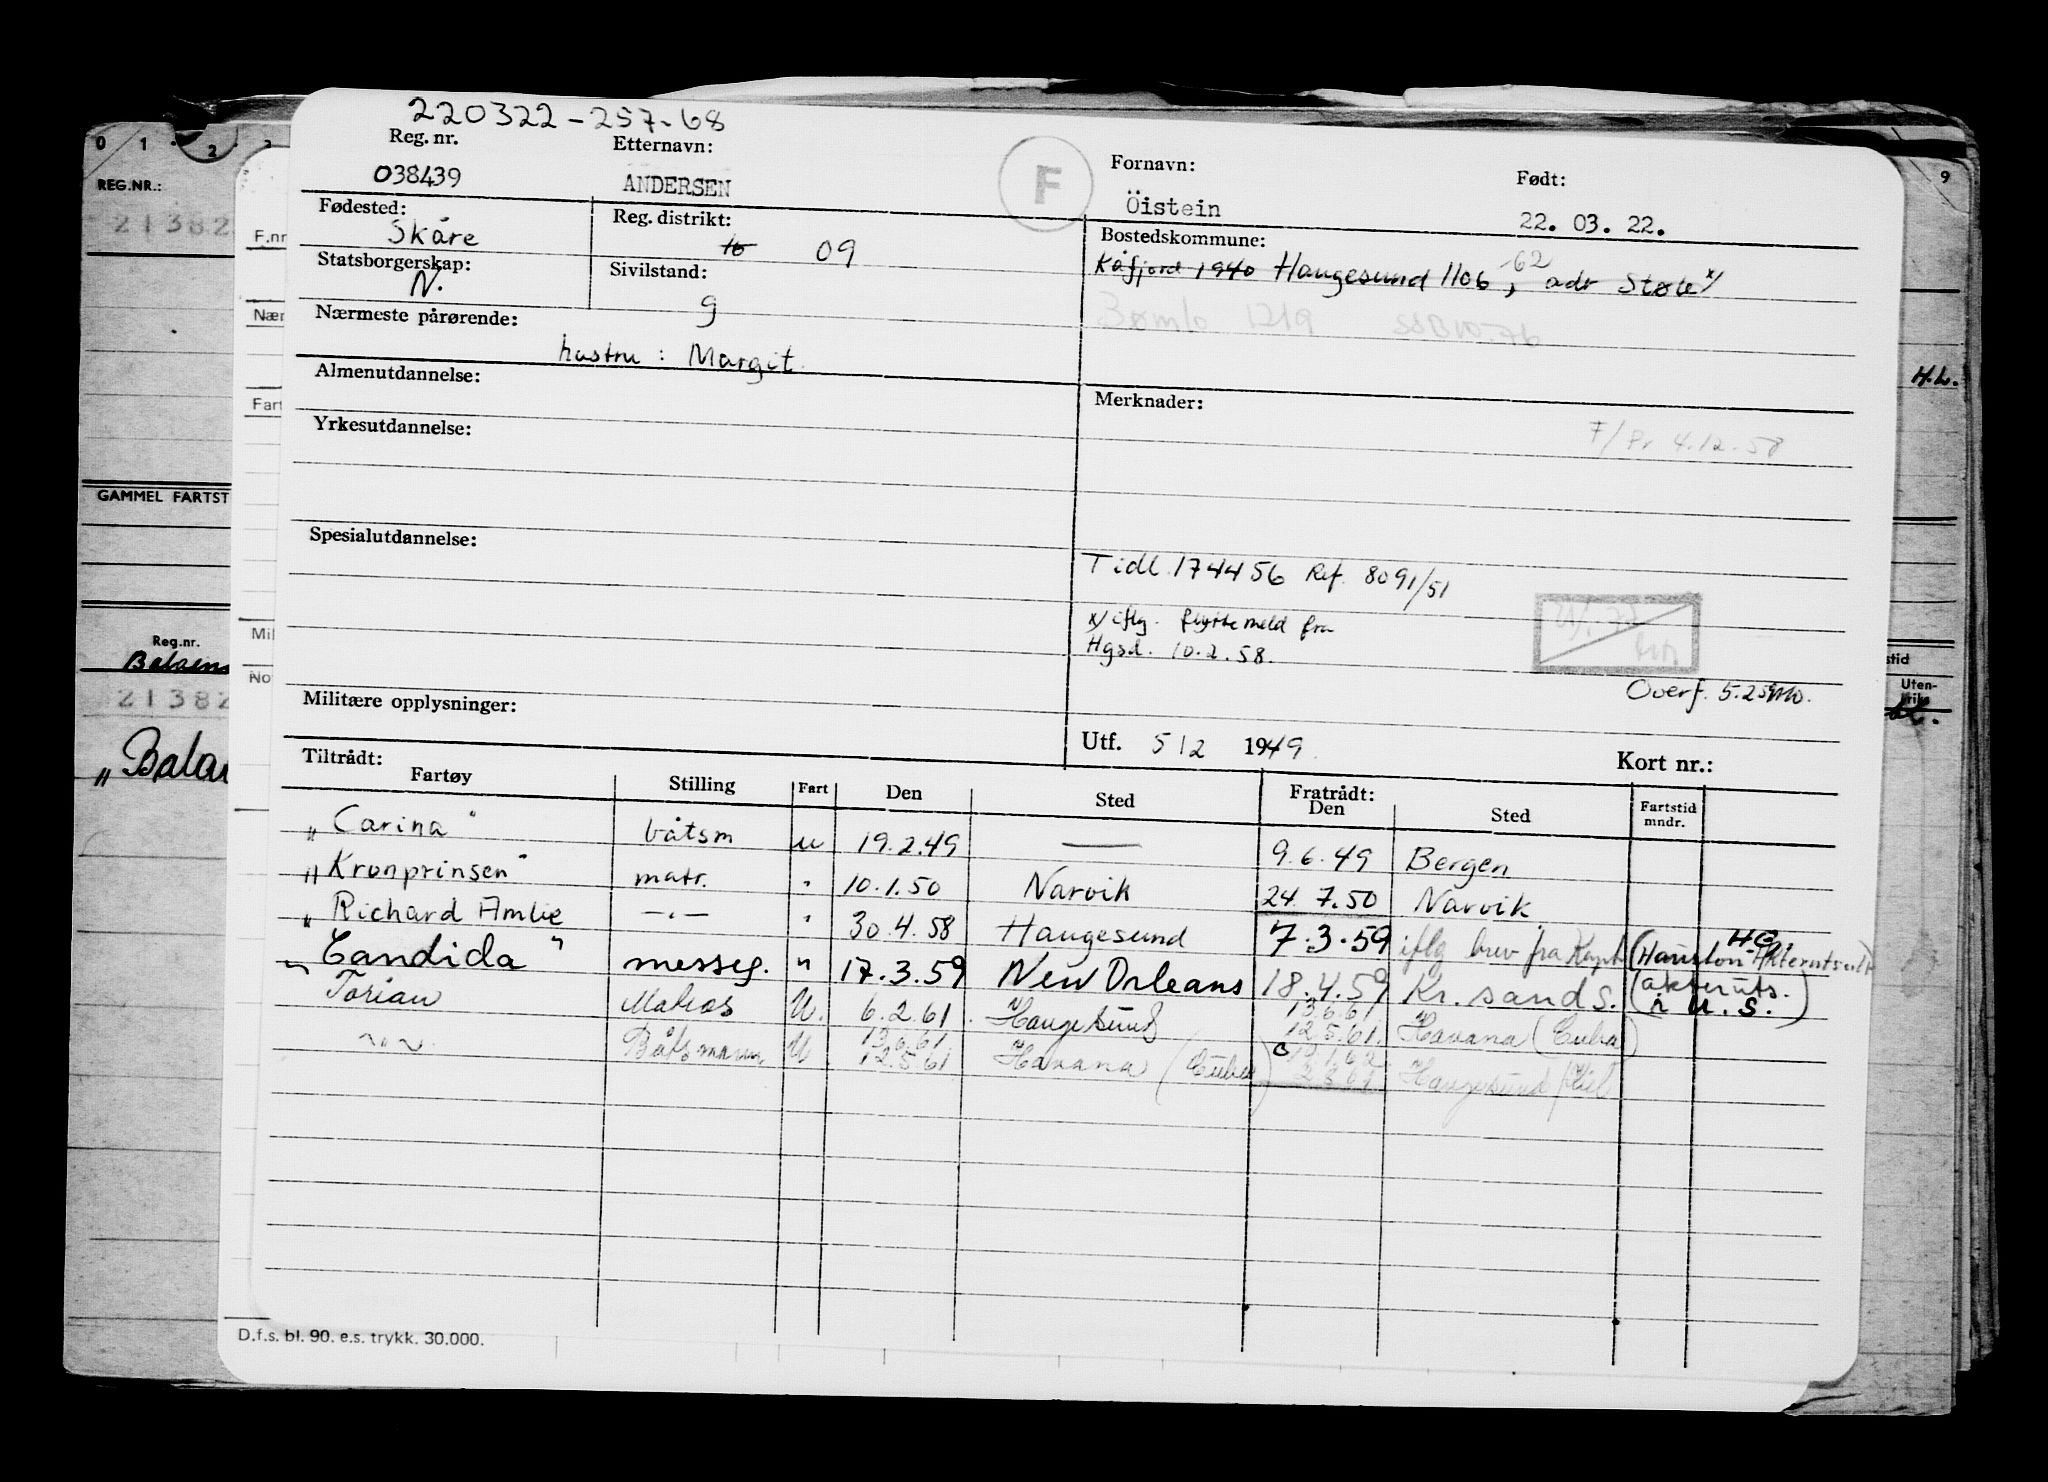 220322-257-68
Reg. nr. Etternavn: Fornavn: Født:
038439 ANDERSEN F Öistein 22. 03. 22.
Fødested: Reg. distrikt: Bostedskommune:
Skåre 16 09 Kåfjord 1940 Haugesund 1106, -62 adr Støle x/
Statsborgerskap: Sivilstand:
N. g Bømlo 1219
Nærmeste pårørende:
hustru: Margit.
Almenutdannelse: Merknader:
Yrkesutdannelse: F/Pr 4.12.58
Spesialutdannelse:
Tidl. 174456 Ref. 8091/51
x/ iflg. flyttemeld fra
Hgsd. 10.2.58.
Overf. 5.2.59
Militære opplysninger:
Utf. 5/2 1949. Kort nr.:
Tiltrådt: Fratrådt:
Fartøy Stilling Fart Den Sted Den Sted Fartstid mndr.
"Carina" båtsm u 19.2.49 — 9.6.49 Bergen
"Kronprinsen" matr. " 10.1.50 Narvik 24.7.50 Narvik
" Richard Amlie —"— " 30.4.58 Haugesund 7.3.59 iflg brev fra
"Candida" messeg. " 17.3.59 New Orleans 18.4.59 Kr. sand S. (akterüts. i U.S.)
Torian Matros U. 6.2.61. Haugesund 13.6.61 12.5.61. Havana (Cuba)
—"— Båtsmann U 13.6.61. 12.5.61 Havana (Cuba) Haugesund/Kiel
D.f.s. bl. 90. e.s. trykk. 30.000.
0 1 2 3
REG.NR.:
21382
F.nr
Nær
Fart
GAMMEL FARTST
Mil
Reg.nr.
No
21382
"Balae
9
H.L.
stid
Uten-
riks